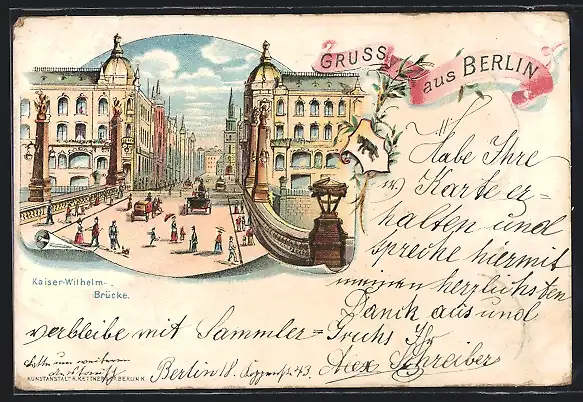 GRUSS aus BERLIN
Kaiser-Wilhelm-
Brücke.
Habe Ihre
w) Karte er-
halten und
spreche hiermit
meinen herzlichsten
Dank aus und
verbleibe mit Sammler=Gruss Ihr
Alex Schreiber
Bitte um weiteren
Austausch
Berlin 18. 43
KUNSTANSTALT R. KETTNER BERLIN N.